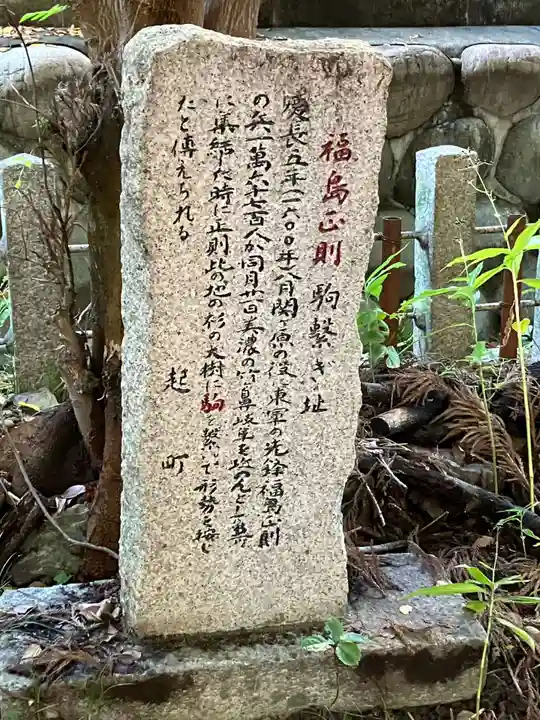 福島正則駒繋ぎ址
慶長五年(一六〇〇年)八月関ヶ原の役東軍の先鋒福島正則
の兵一萬六千七百人が同月廿一日美濃の竹ヶ鼻岐阜を攻めんとし此尊
に集結した時に正則此の地の杉の大樹に駒を繋いで形勢を按じ
たと傳えられる
起町